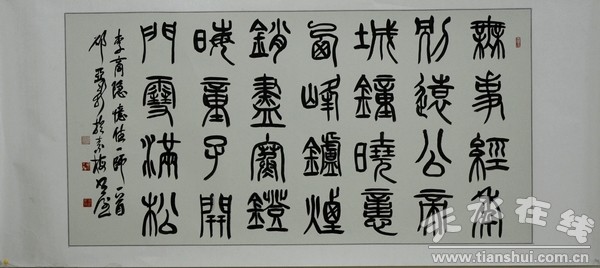 無事經年
別遠公帝
城鐘曉憶
西峰鑪煙
銷盡寒鐙
晦童子開
門雪滿松
李商隱憶住一師一首
天水在线
www.tianshui.com.cn